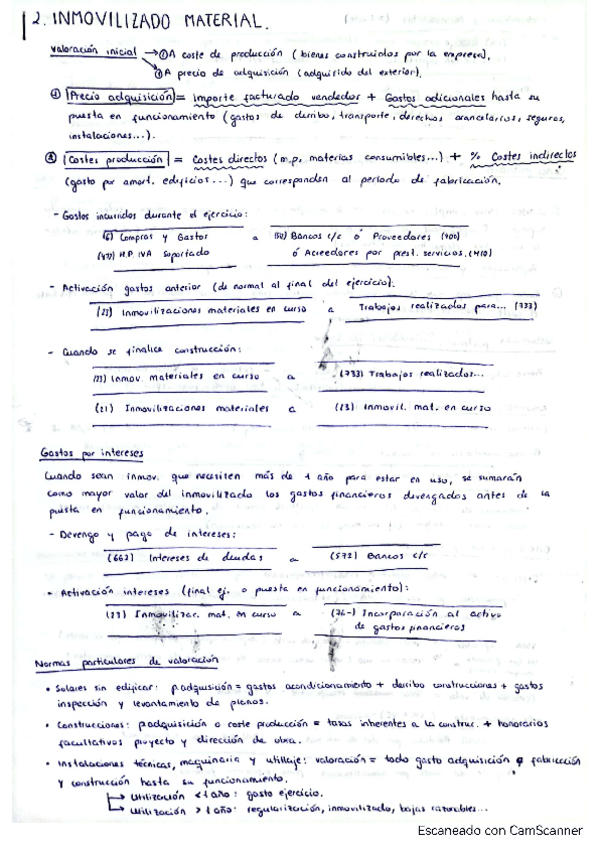 2. INMOVILIZADO MATERIAL.
valoración inicial → ① A coste de producción (bienes construidos por la empresa).
→ ① A precio de adquisición (adquirido del exterior).
① Precio adquisición = importe facturado vendedor + Gastos adicionales hasta su
puesta en funcionamiento (gastos de derribo, transporte, derechos arancelarios, seguros,
instalaciones...).
② Costes producción = Costes directos (m.p, materias consumibles...) + % Costes indirectos
(gasto por amort. edificios...) que corresponden al periodo de fabricación.
- Gastos incurridos durante el ejercicio:
(6) Compras y Gastos a Bancos c/c ó Proveedores (400)
(472) H.P. IVA soportado ó Acreedores por prest. servicios. (410)
- Activación gastos anterior (de normal al final del ejercicio):
(23) Inmovilizaciones materiales en curso a Trabajos realizados para... (733)
- Cuando se finalice construcción:
(23) Inmov. materiales en curso a (733) Trabajos realizados...
(21) Inmovilizaciones materiales a (23) Inmovil. mat. en curso
Gastos por intereses
Cuando sean inmov. que necesiten más de 1 año para estar en uso, se sumarán
como mayor valor del inmovilizado los gastos financieros devengados antes de la
puesta en funcionamiento.
- Devengo y pago de intereses:
(662) Intereses de deudas a (572) Bancos c/c
- Activación intereses (final ej. o puesta en funcionamiento):
(23) Inmovilizac. mat. en curso a (76-) Incorporación al activo
de gastos financieros
Normas particulares de valoración
• Solares sin edificar: p.adquisición = gastos acondicionamiento + derribo construcciones + gastos
inspección y levantamiento de planos.
• Construcciones: p.adquisición o coste producción = tasas inherentes a la construc. + honorarios
facultativos proyecto y dirección de obra.
• Instalaciones técnicas, maquinaria y utillaje: valoración = todo gasto adquisición o fabricación
y construcción hasta su funcionamiento.
→ Utilización < 1 año: gasto ejercicio.
→ Utilización > 1 año: regularización, inmovilizado, bajas razonables...
Escaneado con CamScanner